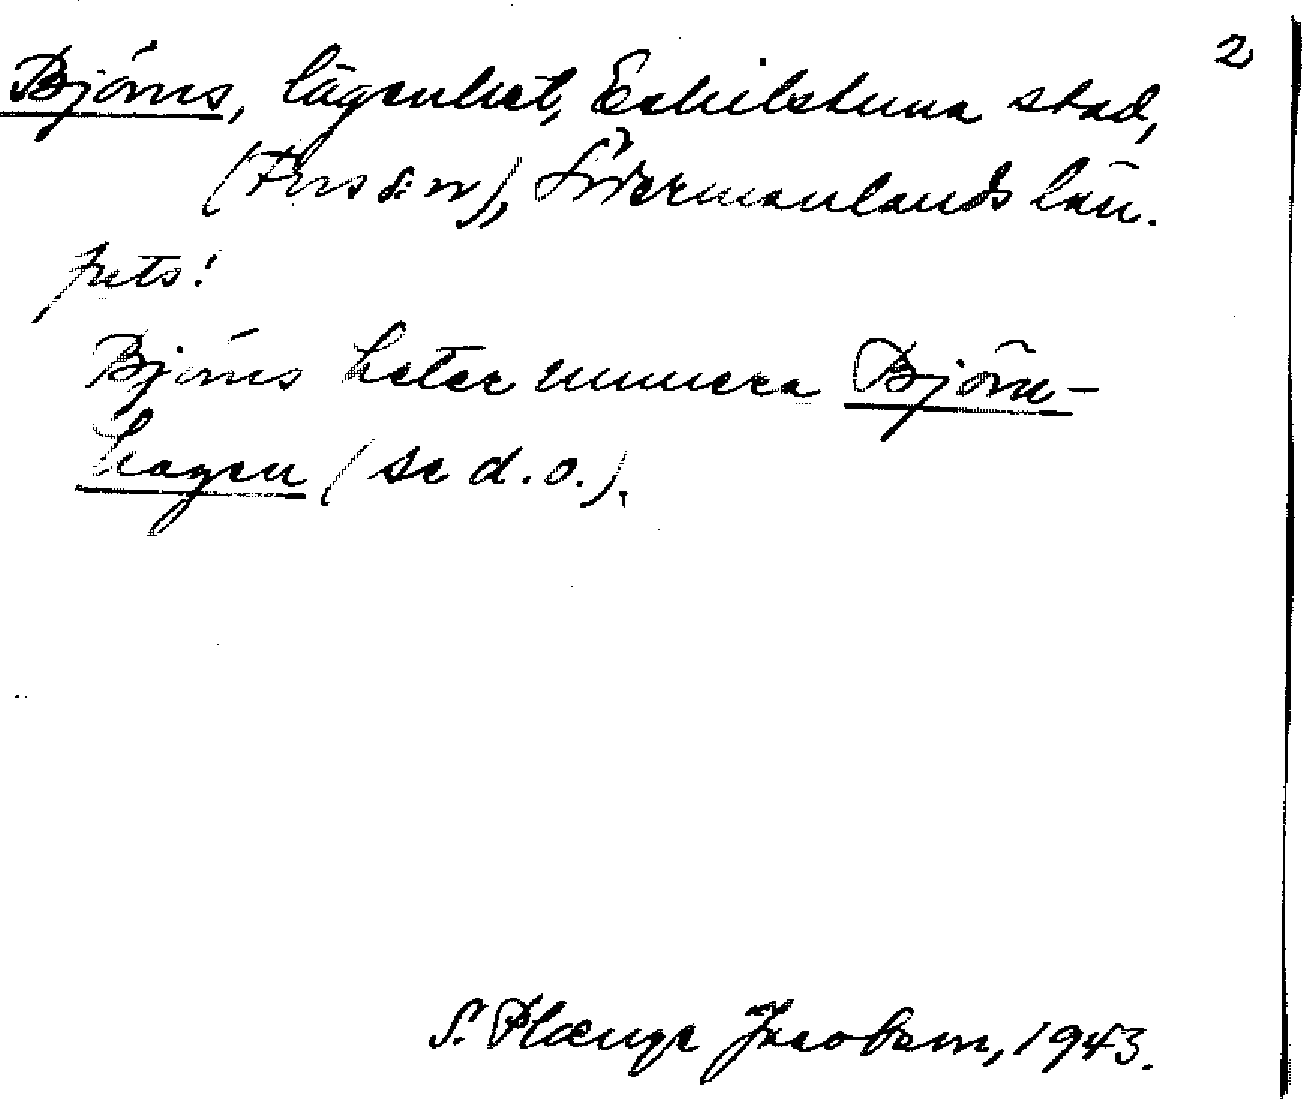 2
Björns, lägenhet, Eskilstuna stad,
(Fors sn), Södermanlands län.
Frets!
Björns heter numera Björn-
hagen (se d. o.).
S. Plænge Jacobson, 1943.